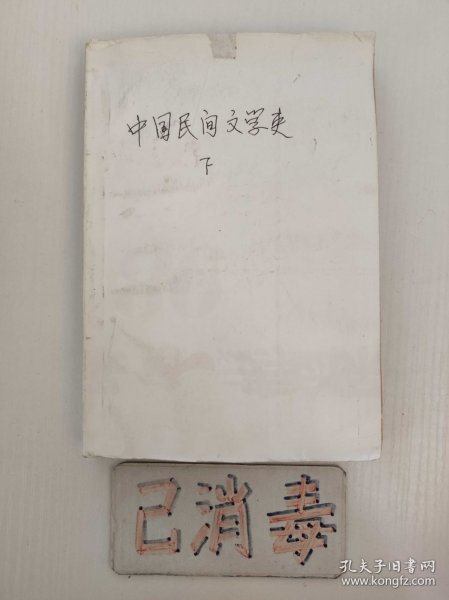 中国民间文学史
下
已消毒
孔夫子旧书网
www.kongfz.com